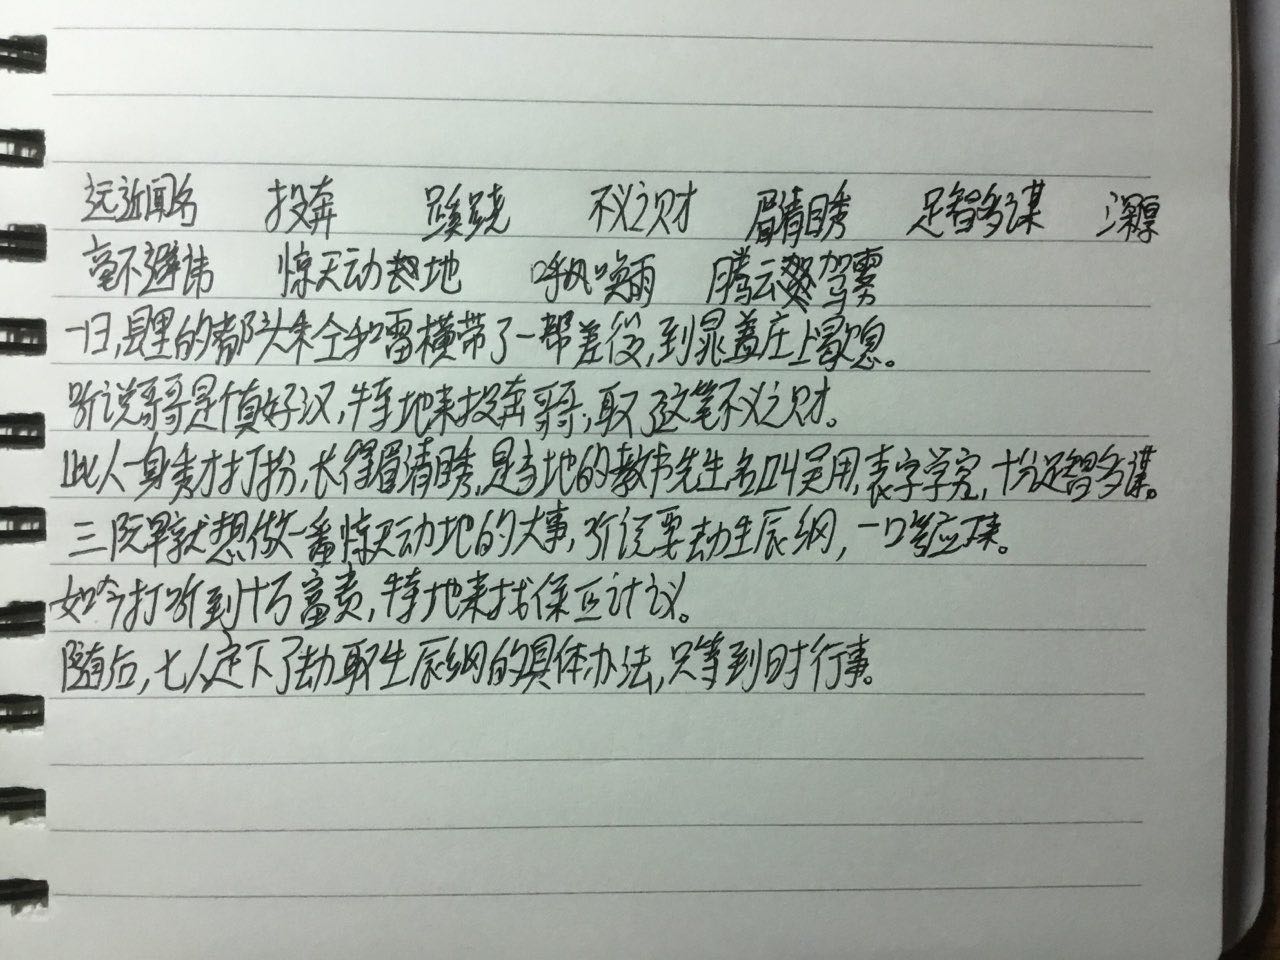 远近闻名 投奔 蹊跷 不义之财 眉清目秀 足智多谋 深厚
毫不避讳 惊天动地 呼风唤雨 腾云驾雾
一日,县里的都头朱仝和雷横带了一帮差役,到晁盖庄上歇息。
听说哥哥是值好汉,特地来投奔哥哥,取了这笔不义之财。
此人一身秀才打扮,长得眉清目秀,是当地的教书先生,名叫吴用,表字学究,十分足智多谋。
三阮早就想做一番惊天动地的大事,听说要劫生辰纲,一口答应下来。
如今打听到十万富贵,特地来找保正计议。
随后,七人定下了劫取生辰纲的具体办法,只等到时行事。